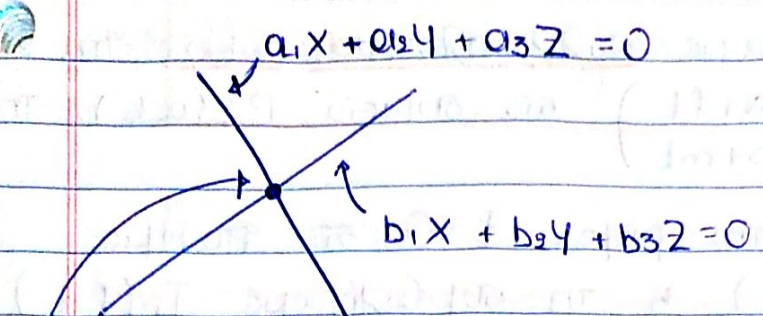 a₁X + a₂Y + a₃Z = 0
b₁X + b₂Y + b₃Z = 0